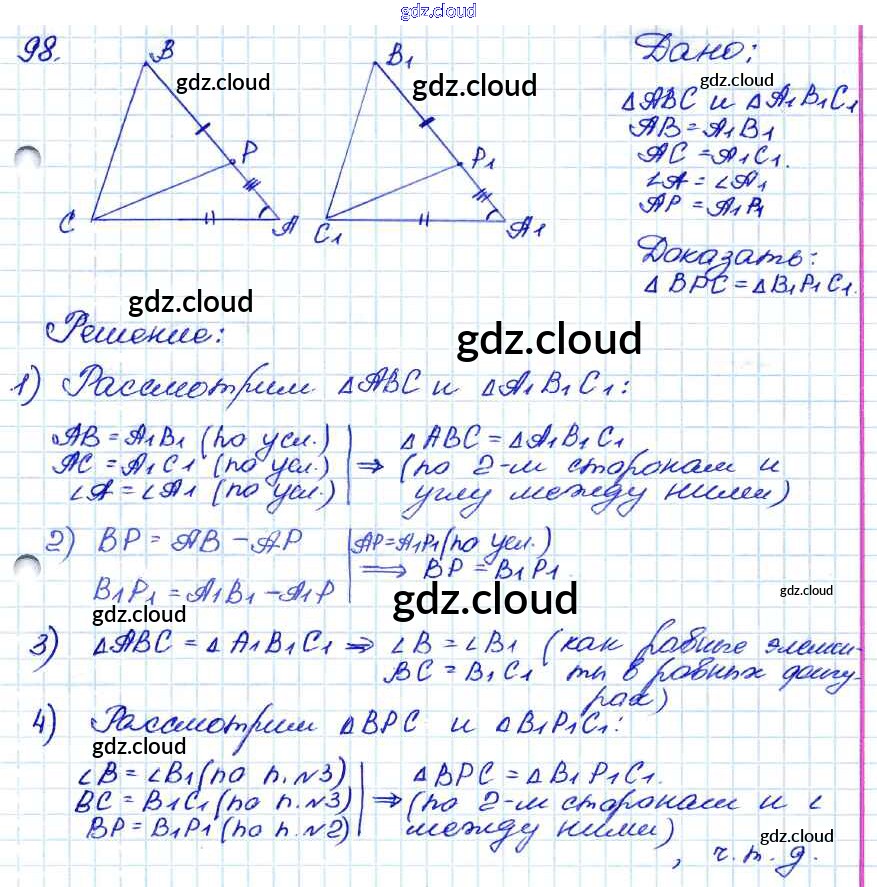 gdz.cloud
98.
B
gdz.cloud
P
C
A
B1
gdz.cloud
P1
C1
A1
Дано:
gdz.cloud
△ABC и △A1B1C1
AB = A1B1
AC = A1C1.
∠A = ∠A1
AP = A1P1
Доказать:
△BPC = △B1P1C1.
gdz.cloud
gdz.cloud
Решение:
1) Рассмотрим △ABC и △A1B1C1:
AB = A1B1 (по усл.)
AC = A1C1 (по усл.)
∠A = ∠A1 (по усл.)
⇒ △ABC = △A1B1C1
(по 2-м сторонам и
углу между ними)
2) BP = AB - AP
B1P1 = A1B1 - A1P
AP = A1P1 (по усл.)
⇒ BP = B1P1
gdz.cloud
gdz.cloud
gdz.cloud
3) △ABC = △A1B1C1 ⇒ ∠B = ∠B1 (как равные элемен-
BC = B1C1 ты в равных фигу-
рах)
4) Рассмотрим △BPC и △B1P1C1:
gdz.cloud
∠B = ∠B1 (по п. №3)
BC = B1C1 (по п. №3)
BP = B1P1 (по п. №2)
⇒ △BPC = △B1P1C1.
(по 2-м сторонам и ∠
между ними)
gdz.cloud
, ч.т.д.